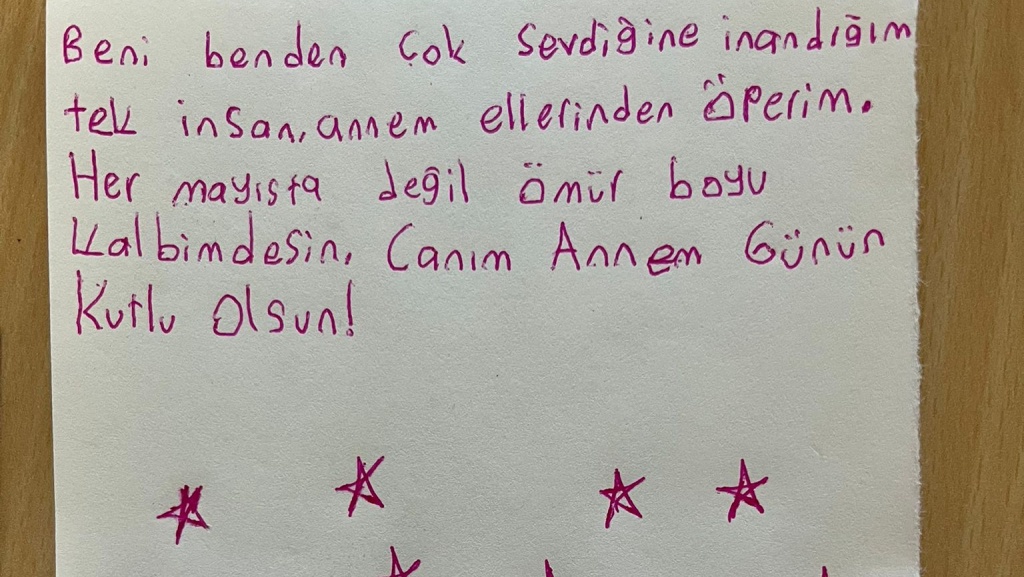 Beni benden çok sevdiğine inandığım
tek insan, annem ellerinden öperim.
Her mayısta değil ömür boyu
kalbimdesin. Canım Annem Günün
Kutlu Olsun!